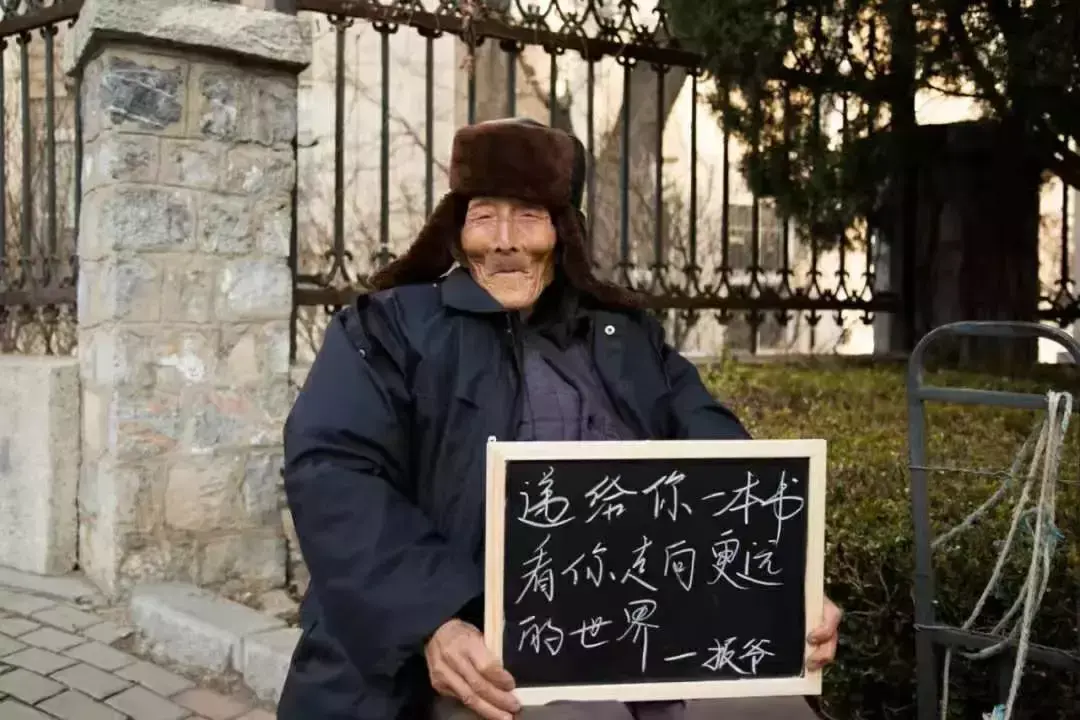 递给你一本书
看你走向更远
的世界 — 报爷